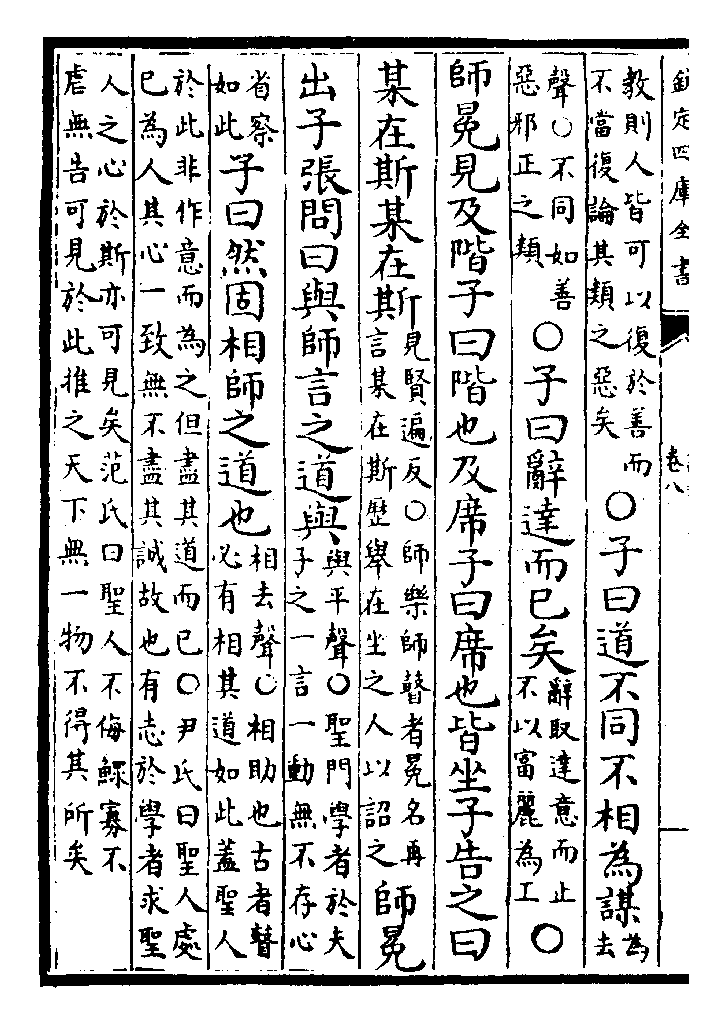 欽定四庫全書
卷八
教則人皆可以復於善而
不當復論其類之惡矣
○子曰道不同不相為謀
為去
聲○不同如善
惡邪正之類
○子曰辭達而已矣
辭取達意而止
不以富麗為工
○
師冕見及階子曰階也及席子曰席也皆坐子告之曰
某在斯某在斯
見賢遍反○師樂師瞽者冕名再
言某在斯歷舉在坐之人以詔之
師冕
出子張問曰與師言之道與
與平聲○聖門學者於夫
子之一言一動無不存心
省察
如此
子曰然固相師之道也
相去聲○相助也古者瞽
必有相其道如此蓋聖人
於此非作意而為之但盡其道而已○尹氏曰聖人處
已為人其心一致無不盡其誠故也有志於學者求聖
人之心於斯亦可見矣范氏曰聖人不侮鰥寡不
虐無告可見於此推之天下無一物不得其所矣